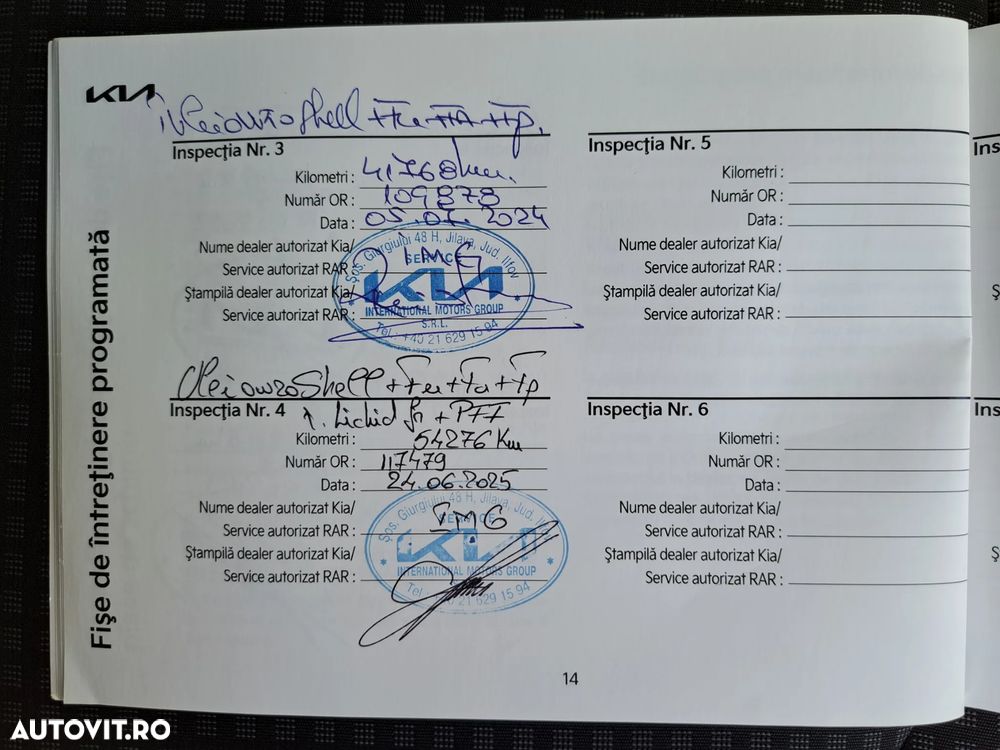 KIA
Ulei ouro Shell + Fu + Fa + Fp.
Inspecţia Nr. 3
Kilometri : 41768 km.
Număr OR : 109878
Data : 05.07.2024
Nume dealer autorizat Kia/
Service autorizat RAR : IMG
Ştampilă dealer autorizat Kia/
Service autorizat RAR :
Şos. Giurgiului 48 H, Jilava, Jud. Ilfov
SERVICE
KIA
INTERNATIONAL MOTORS GROUP
S.R.L.
Tel.: +40 21 629 15 94
Ulei ouro Shell + Fu + Fa + Fp
Inspecţia Nr. 4 Lichid fr + PFF
Kilometri : 54276 Km
Număr OR : 117479
Data : 24.06.2025
Nume dealer autorizat Kia/
Service autorizat RAR : IMG
Ştampilă dealer autorizat Kia/
Service autorizat RAR :
Şos. Giurgiului 48 H, Jilava, Jud. Ilfov
SERVICE
KIA
INTERNATIONAL MOTORS GROUP
Tel.: +40 21 629 15 94
Inspecţia Nr. 5
Kilometri :
Număr OR :
Data :
Nume dealer autorizat Kia/
Service autorizat RAR :
Ştampilă dealer autorizat Kia/
Service autorizat RAR :
Inspecţia Nr. 6
Kilometri :
Număr OR :
Data :
Nume dealer autorizat Kia/
Service autorizat RAR :
Ştampilă dealer autorizat Kia/
Service autorizat RAR :
Ins
Ş
Ins
Ş
Fişe de întreţinere programată
14
AUTOVIT.RO